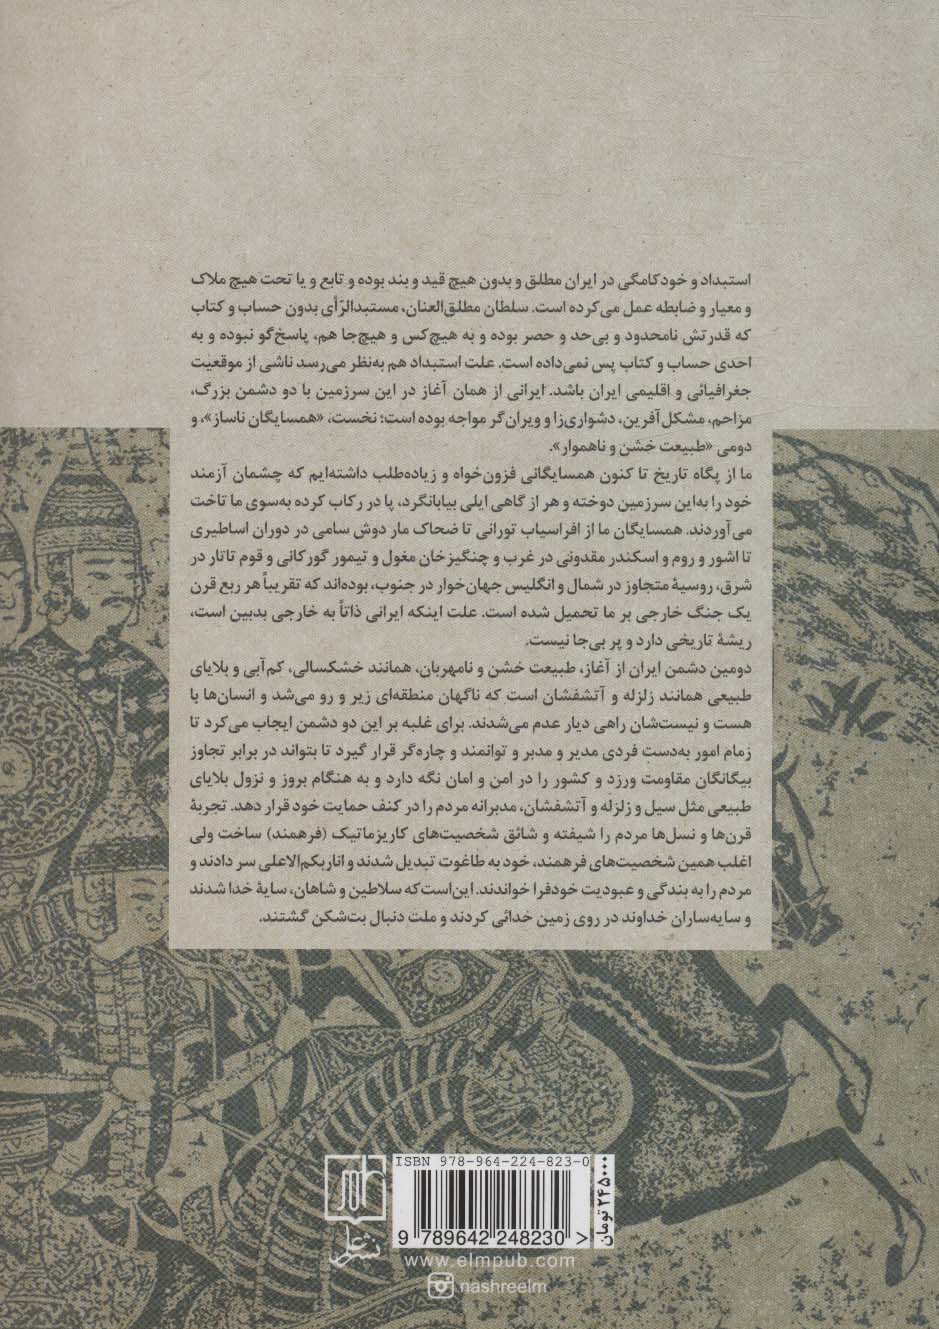 استبداد و خودکامگی در ایران مطلق و بدون هیچ قید و بند بوده و تابع و یا تحت هیچ ملاک
و معیار و ضابطه عمل می‌کرده است. سلطان مطلق‌العنان، مستبدالرّأی بدون حساب و کتاب
که قدرتش نامحدود و بی‌حد و حصر بوده و به هیچ‌کس و هیچ‌جا هم، پاسخ‌گو نبوده و به
احدی حساب و کتاب پس نمی‌داده است. علت استبداد هم به‌نظر می‌رسد ناشی از موقعیت
جغرافیائی و اقلیمی ایران باشد. ایرانی از همان آغاز در این سرزمین با دو دشمن بزرگ،
مزاحم، مشکل‌آفرین، دشواری‌زا و ویران‌گر مواجه بوده است؛ نخست، «همسایگان ناساز»، و
دومی «طبیعت خشن و ناهموار».
ما از پگاه تاریخ تا کنون همسایگانی فزون‌خواه و زیاده‌طلب داشته‌ایم که چشمان آزمند
خود را به‌این سرزمین دوخته و هر از گاهی ایلی بیابانگرد، پا در رکاب کرده به‌سوی ما تاخت
می‌آوردند. همسایگان ما از افراسیاب تورانی تا ضحاک مار دوش سامی در دوران اساطیری
تا اشور و روم و اسکندر مقدونی در غرب و چنگیزخان مغول و تیمور گورکانی و قوم تاتار در
شرق، روسیهٔ متجاوز در شمال و انگلیس جهان‌خوار در جنوب، بوده‌اند که تقریباً هر ربع قرن
یک جنگ خارجی بر ما تحمیل شده است. علت اینکه ایرانی ذاتاً به خارجی بدبین است،
ریشهٔ تاریخی دارد و پر بی‌جا نیست.
دومین دشمن ایران از آغاز، طبیعت خشن و نامهربان، همانند خشکسالی، کم‌آبی و بلایای
طبیعی همانند زلزله و آتشفشان است که ناگهان منطقه‌ای زیر و رو می‌شد و انسان‌ها با
هست و نیست‌شان راهی دیار عدم می‌شدند. برای غلبه بر این دو دشمن ایجاب می‌کرد تا
زمام امور به‌دست فردی مدیر و مدبر و توانمند و چاره‌گر قرار گیرد تا بتواند در برابر تجاوز
بیگانگان مقاومت ورزد و کشور را در امن و امان نگه دارد و به هنگام بروز و نزول بلایای
طبیعی مثل سیل و زلزله و آتشفشان، مدبرانه مردم را در کنف حمایت خود قرار دهد. تجربهٔ
قرن‌ها و نسل‌ها مردم را شیفته و شائق شخصیت‌های کاریزماتیک (فرهمند) ساخت ولی
اغلب همین شخصیت‌های فرهمند، خود به طاغوت تبدیل شدند و اناربکم‌الاعلی سر دادند و
مردم را به بندگی و عبودیت خودفرا خواندند. این‌است‌که سلاطین و شاهان، سایهٔ خدا شدند
و سایه‌ساران خداوند در روی زمین خدائی کردند و ملت دنبال بت‌شکن گشتند.
ISBN 978-964-224-823-0
9 789642 248230 >
۲۴۵۰۰۰ تومان
نشر علم
www.elmpub.com
nashreelm